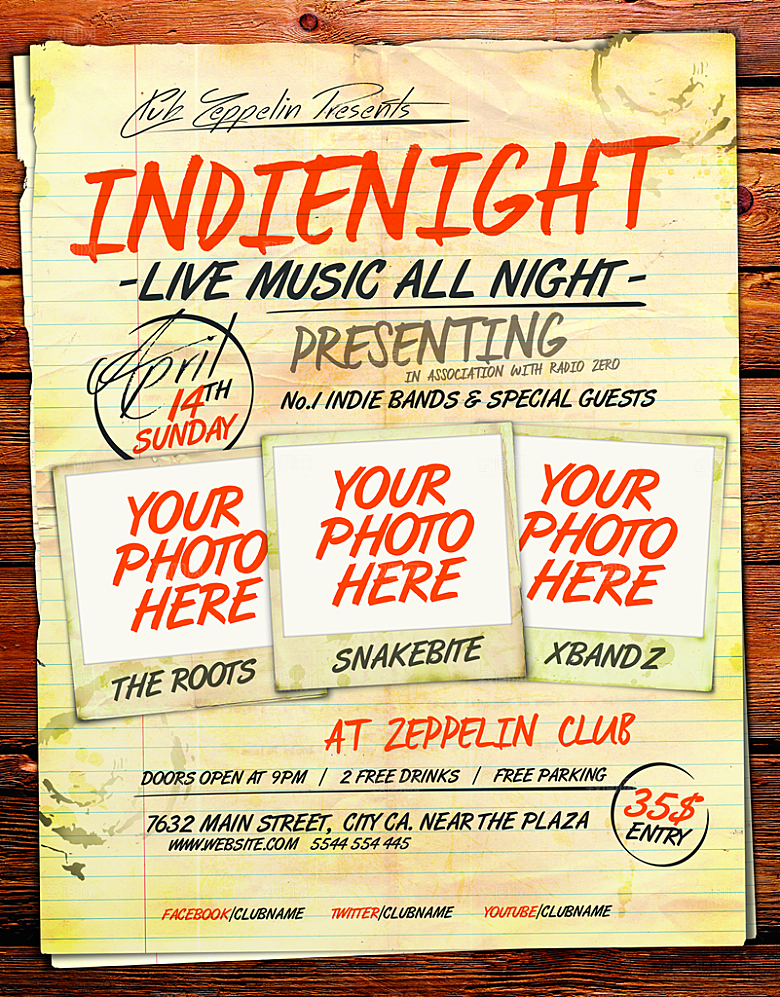 Club Zeppelin Presents
INDIENIGHT
-LIVE MUSIC ALL NIGHT-
April
14TH
SUNDAY
PRESENTING
IN ASSOCIATION WITH RADIO ZERO
No.1 INDIE BANDS & SPECIAL GUESTS
YOUR
PHOTO
HERE
THE ROOTS
YOUR
PHOTO
HERE
SNAKEBITE
YOUR
PHOTO
HERE
XBANDZ
AT ZEPPELIN CLUB
DOORS OPEN AT 9PM / 2 FREE DRINKS / FREE PARKING
35$
ENTRY
7632 MAIN STREET, CITY CA. NEAR THE PLAZA
WWW.WEBSITE.COM 5544 554 445
FACEBOOK/CLUBNAME TWITTER/CLUBNAME YOUTUBE/CLUBNAME